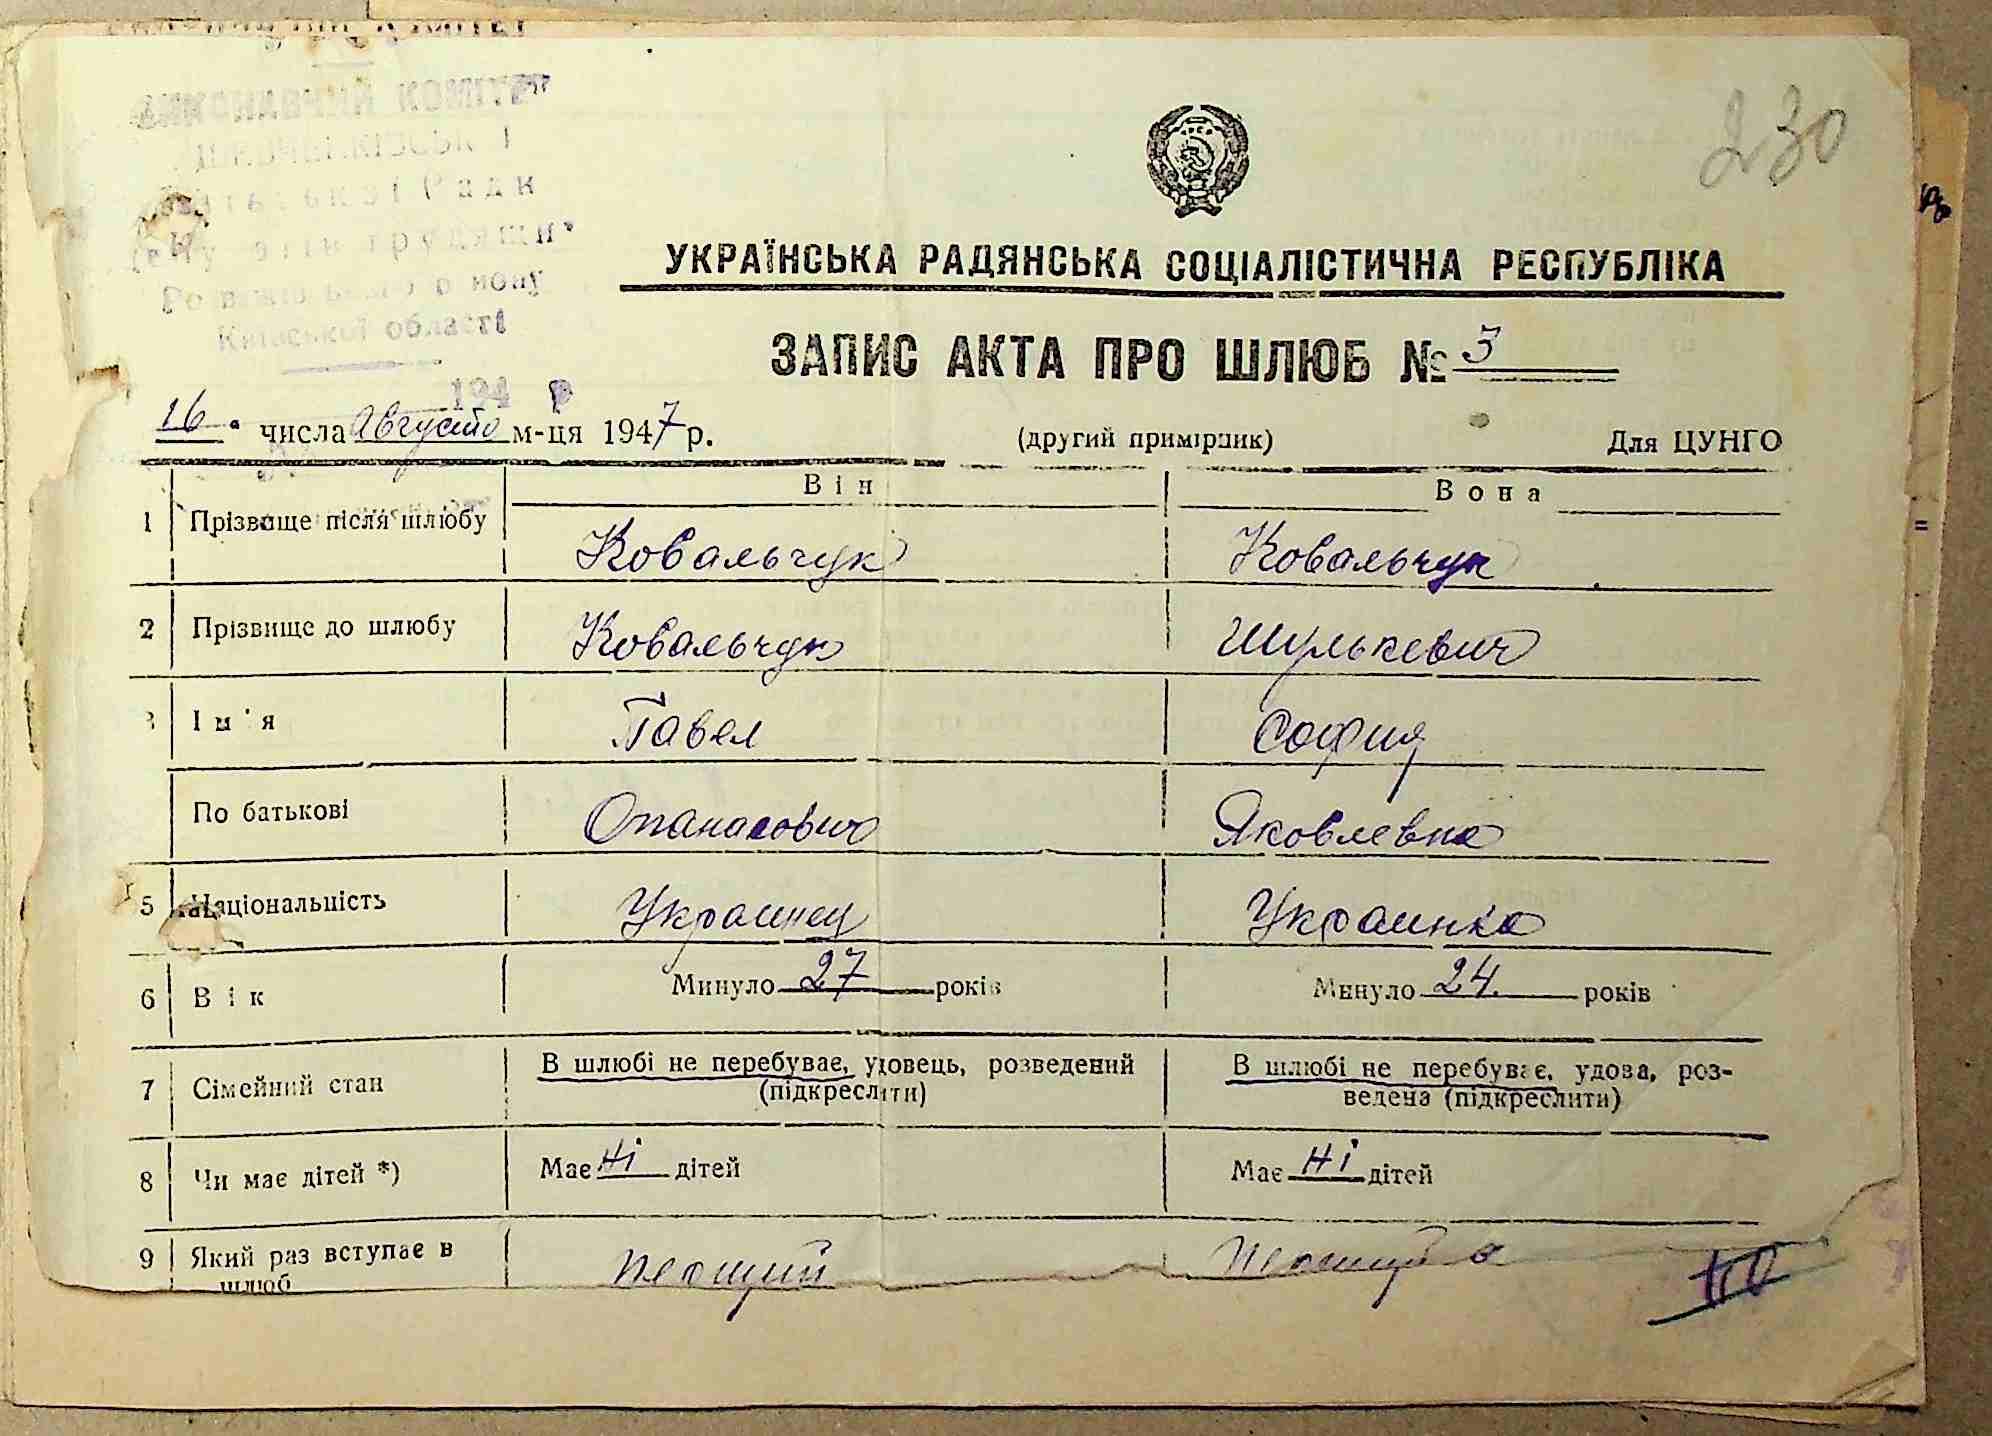 Київської області
194
230
УКРАЇНСЬКА РАДЯНСЬКА СОЦІАЛІСТИЧНА РЕСПУБЛІКА
ЗАПИС АКТА ПРО ШЛЮБ № 3
16 числа Августа м-ця 1947 р. (другий примірник) Для ЦУНГО
Він Вона
1 Прізвище після шлюбу Ковальчук Ковальчук
2 Прізвище до шлюбу Ковальчук Шулькевич
3 Ім'я Павел София
По батькові Опанасович Яковлевна
5 Національність Украинец Украинка
6 Вік Минуло 27 років Минуло 24 років
7 Сімейний стан В шлюбі не перебуває, удовець, розведений (підкреслити) В шлюбі не перебуває, удова, роз-
ведена (підкреслити)
8 Чи має дітей *) Має ні дітей Має ні дітей
9 Який раз вступає в
шлюб